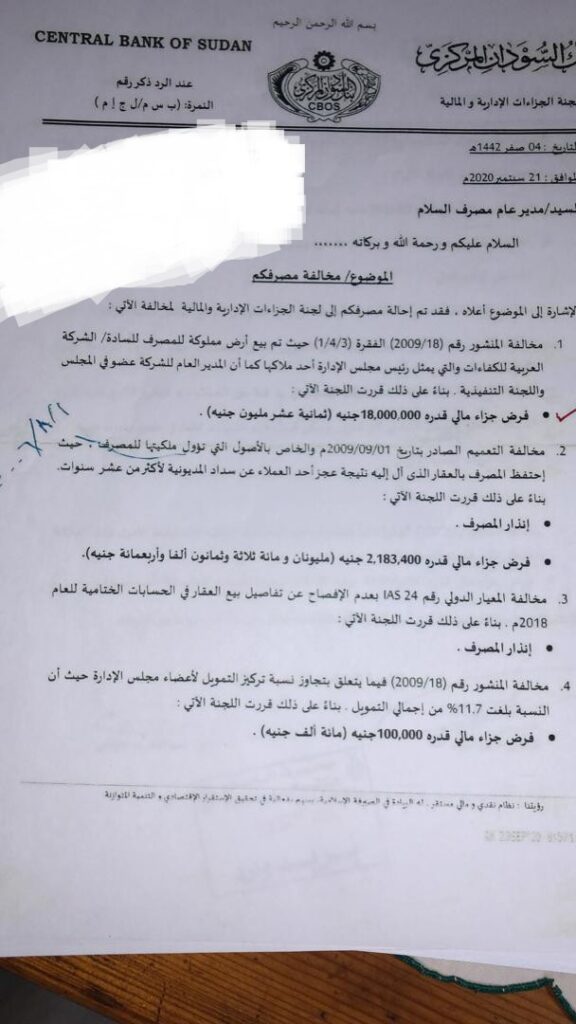 بسم الله الرحمن الرحيم
CENTRAL BANK OF SUDAN
ك السودان المركزي
CBOS
عند الرد ذكر رقم
جنة الجزاءات الإدارية و المالية
النمرة: (ب س م/ل ج إ م )
لتاريخ : 04 صفر 1442هـ
لموافق : 21 سبتمبر 2020م
لسيد/مدير عام مصرف السلام
السلام عليكم و رحمة الله و بركاته .......
الموضوع/ مخالفة مصرفكم
لإشارة إلى الموضوع أعلاه ، فقد تم إحالة مصرفكم إلى لجنة الجزاءات الإدارية والمالية لمخالفة الآتي :
1. مخالفة المنشور رقم (2009/18) الفقرة (1/4/3) حيث تم بيع أرض مملوكة للمصرف للسادة/ الشركة
العربية للكفاءات والتي يمثل رئيس مجلس الإدارة أحد ملاكها كما أن المدير العام للشركة عضو في المجلس
واللجنة التنفيذية . بناءً على ذلك قررت اللجنة الآتي :
• فرض جزاء مالي قدره 18,000,000جنيه (ثمانية عشر مليون جنيه) .
2. مخالفة التعميم الصادر بتاريخ 2009/09/01م والخاص بالأصول التي تؤول ملكيتها للمصرف ، حيث
إحتفظ المصرف بالعقار الذى آل إليه نتيجة عجز أحد العملاء عن سداد المديونية لأكثر من عشر سنوات.
بناءً على ذلك قررت اللجنة الآتي :
• إنذار المصرف .
• فرض جزاء مالي قدره 2,183,400 جنيه (مليونان و مائة ثلاثة وثمانون ألفا وأربعمائة جنيه).
3. مخالفة المعيار الدولي رقم IAS 24 بعدم الإفصاح عن تفاصيل بيع العقار في الحسابات الختامية للعام
2018م . بناءً على ذلك قررت اللجنة الآتي :
• إنذار المصرف .
4. مخالفة المنشور رقم (2009/18) فيما يتعلق بتجاوز نسبة تركيز التمويل لأعضاء مجلس الإدارة حيث أن
النسبة بلغت 11.7% من إجمالي التمويل . بناءً على ذلك قررت اللجنة الآتي :
• فرض جزاء مالي قدره 100,000جنيه (مائة ألف جنيه) .
رؤيتنا : نظام نقدي و مالي مستقر ، له الريادة في الصيرفة الإسلامية، يسهم بفعالية في تحقيق الإستقرار الإقتصادي و التنمية المتوازنة